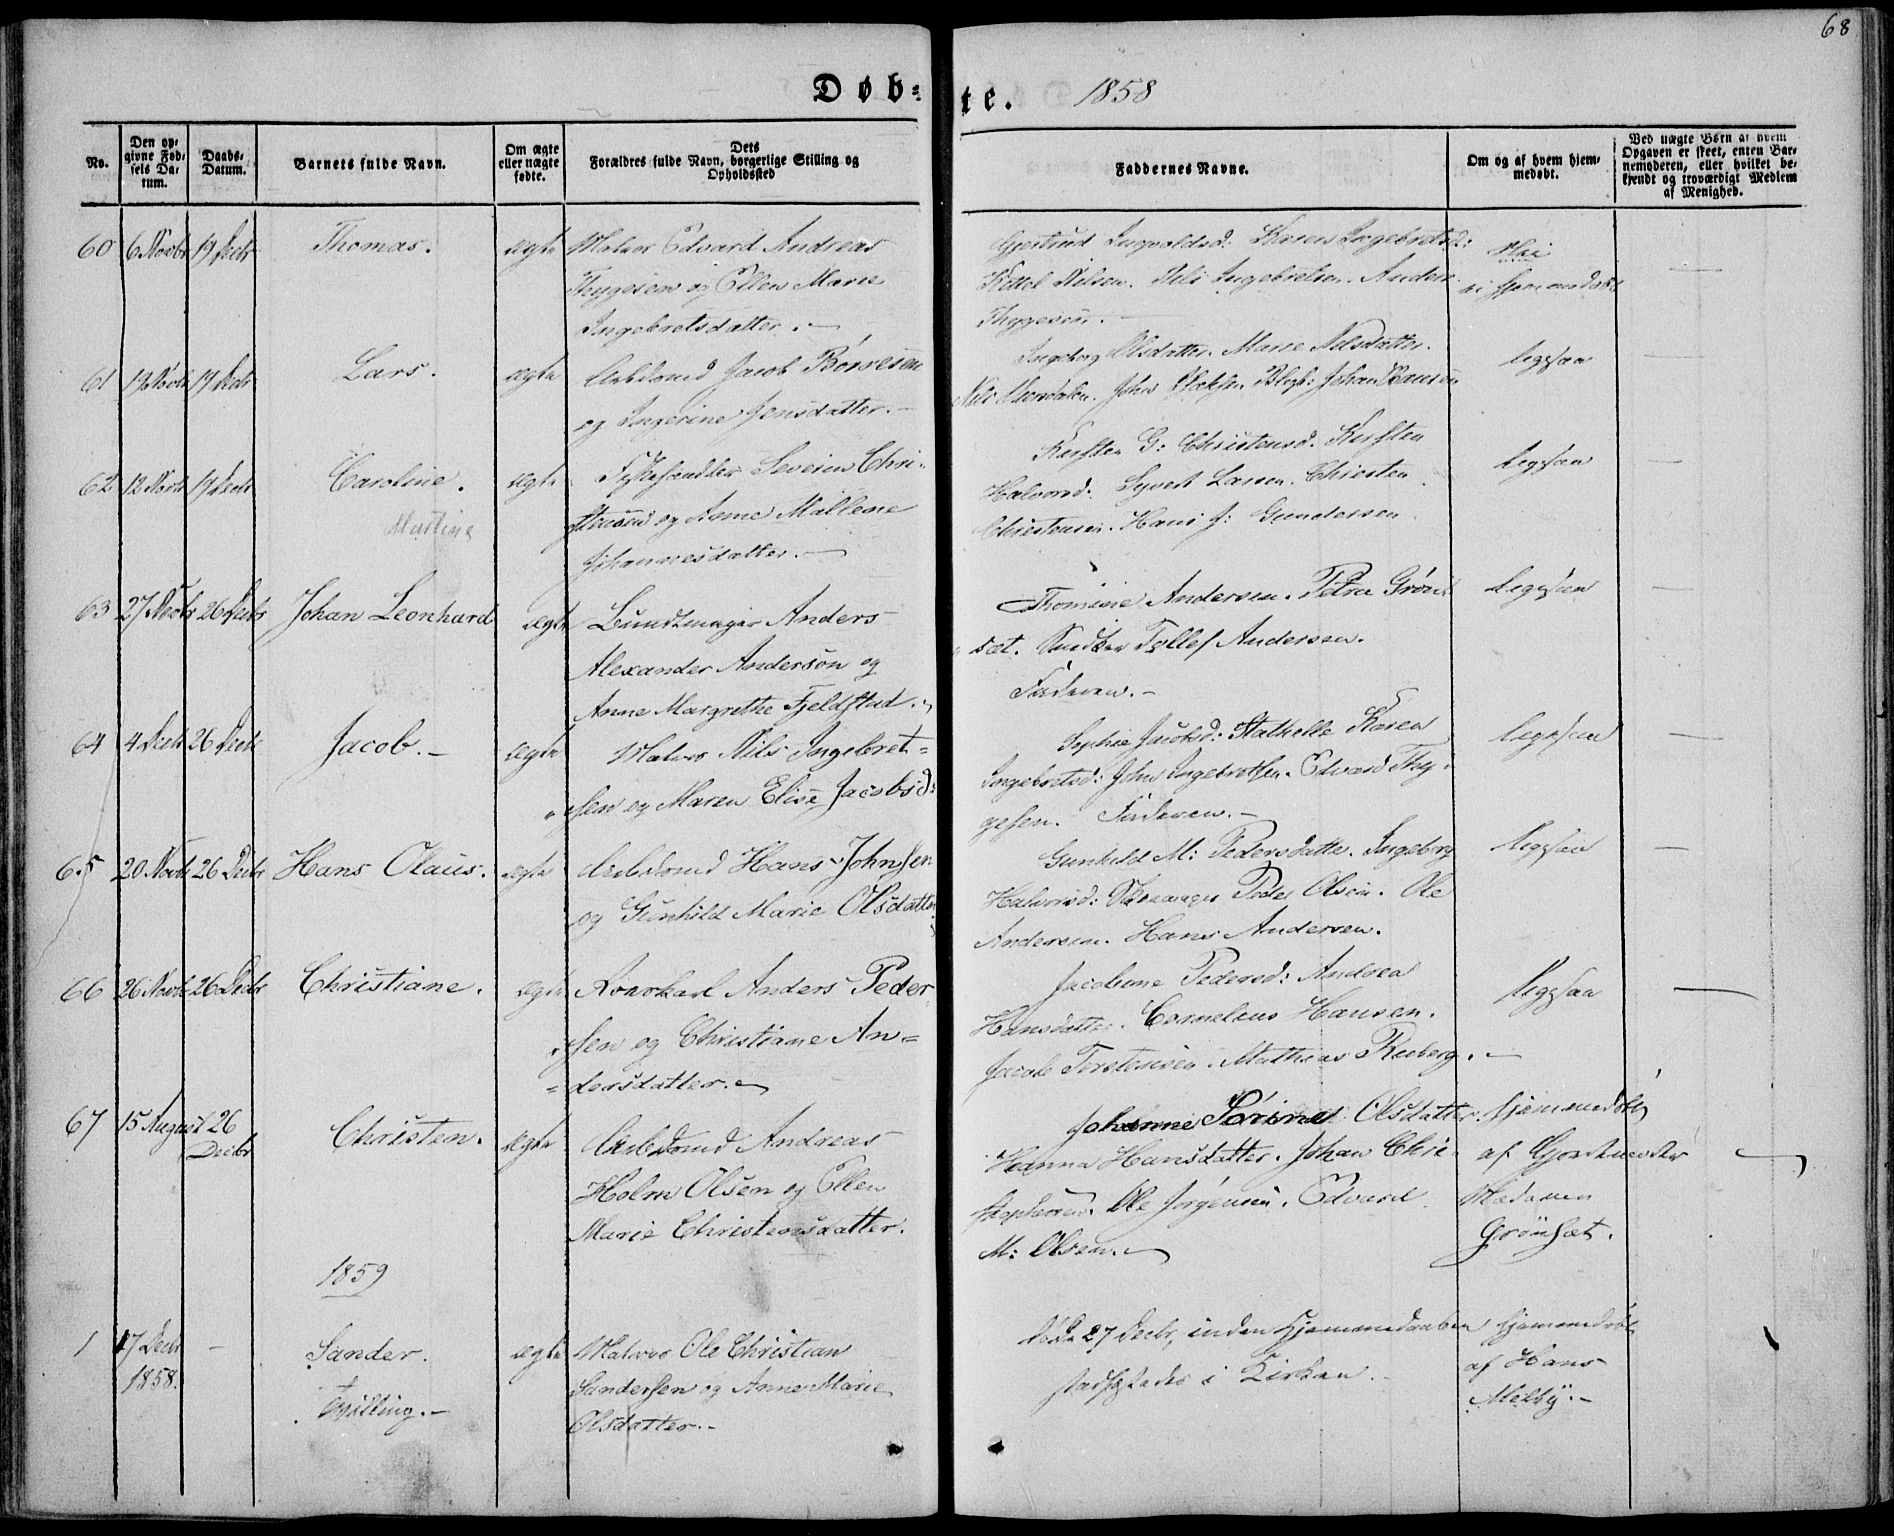 68
Døb=
te. 1858
No.
Den op=
givne Fød=
sels Da=
tum.
Daabs=
Datum.
Barnets fulde Navn.
Om ægte
eller uægte
fødte.
Dets
Forældres fulde Navn, borgerlige Stilling og
Opholdssted
Faddernes Navne.
Om og af hvem hjem=
medøbt.
Ved uægte Børn af hvem
Opgaven er skeet, enten Bar=
nemoderen, eller hvilket be=
kjendt og troværdigt Medlem
af Menighed.
60 6 Novbr 19 Decbr Thomas. ægte Matros Edvard Andreas
Thygesen og Ellen Marie
Ingebretsdatter. –
Gjertrud Ingvoldsd: Karen Ingebretsd:
Kittel Nilsen. Nils Ingebretsen. Anders
Thygesen. –
Nei
ei hjemmedøbt
61 19 Decbr Lars. ægte Arbdsmd Jacob
og Ingerine Jensdatter. –
Ingeborg Olsdatter. Marie Nilsdatter.
Nils John Johan Hansen
ligesaa
62 12 Novbr 19 Decbr Caroline. ægte Severin Chri=
stensen og Anne Mallene
Johannesdatter. –
Martine
Kirsten G: Christensd. Kirsten
Halvorsd: Syvert Larsen. Christen
Christensen. Hans J: Gundersen
ligesaa
63 27 Novbr 26 Decbr Johan Leonhard ægte Bundtmager Anders
Alexander Anderson og
Anne Margrethe Fjeldstad.
Thomine Andersen. Petra Grøn=
sæt. Snedker Tollef Andersen.
Faderen. –
ligesaa
64 4 Decbr 26 Decbr Jacob. – ægte Matros Nils Ingebret=
sen og Maren Elise Jacobsd:
Sophie Jacobsd: Stathelle Karen
Ingebretsd: John Ingebretsen. Edvard Thy=
gesen. Faderen. –
ligesaa
65 20 Novbr 26 Decbr Hans Olaus. ægte Arbdsmd Hans Johnsen
og Gunhild Marie Olsdatter
Gunhild M: Pedersdatter. Ingeborg
Halvorsd: Peder Olsen. Ole
Andersen. Hans Andersen.
ligesaa
66 26 Novbr 26 Decbr Christiane. ægte Rorskarl Anders Peder
sen og Christiane An=
=dersdatter.
Jacobine Pedersd: Andrea
Hansdatter. Cornelius Hansen.
Jacob Terstensen. Mathias . –
ligesaa
67 15 August 26
Decbr
Christen. ægte Arbdsmd Andreas
Holm Olsen og Ellen
Marie Christensdatter.
Johanne Sørine Olsdatter.
Hanna Hansdatter. Johan Chri=
stophersen. Ole Jørgensen. Edvard
M: Olsen.
hjemmedøbt
af Gjordemoder
Madamen
Grønsæt.
1859
1 17 Decbr
1858.
– Sander.
Tvilling. –
ægte Matros Ole Christian
Sandersen og Anne Marie
Olsdatter. –
Døde 27 Decbr, inden Hjemmedaaben
stadfæstedes i Kirken. –
hjemmedøbt
af Hans
Melby. –